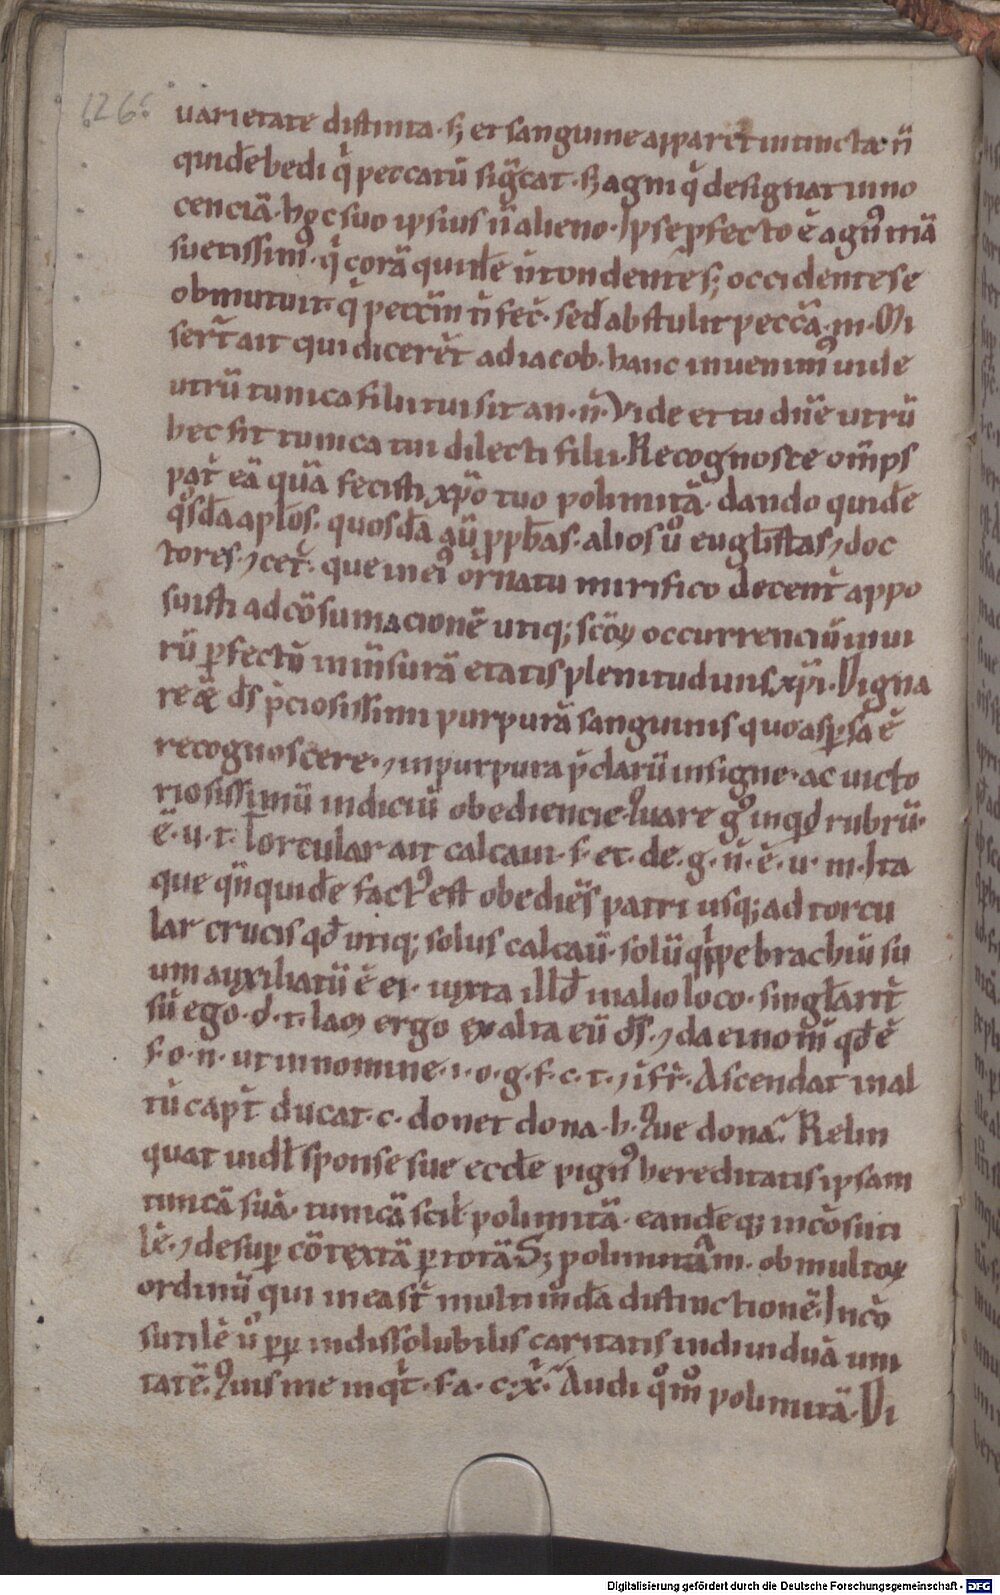 126c
uarietate distincta. sꝫ et sanguine apparet intincta. n̄
quidē hedi q̇ peccatū sig̅cat. sꝫ agni q̇ designat inno
cenciā. hoc suo ipsius n̄ alieno. Ipse ꝓfecto ē agn᷒ mā
suetissim᷒. q̇ corā quidē n̄ tondentes; occidente se
obmutuit. q̇ peccm̄ n̄ fec̄. sed abstulit pecc̄a. m. Mi
sert̄ ait qui diceret̄ ad iacob. hanc inuenim᷒ uide
utrū tunica filii tui sit an. n̄. Vide et tu dn̄e utrū
hec sit tunica tui dilecti filii. Recognosce om̄ps
pat̄ eā quā fecisti xp̄o tuo polimitā. dando quidē
q᷒sdā apl̄os. quosdā aū ꝓph̄as. alios u᷒ eugl̄istas ⁊ doc
tores. ⁊ cet̄. que in ei᷒ ornatu mirifico decent̄ appo
suisti ad cōsumacionē utiqꝫ sc̄oꝝ occurrenciū in ui
rū ꝑfectū in m̄surā etatis plenitudinis xp̄i. Digna
re ds̄ p̄ciosissimi purpurā sanguinis quo aspsa ē
recognoscere. ⁊ in purpura p̄clarū insigne. ac uicto
riosissimū indiciū obediencie. Quare g᷒ inqd̄ rubrū.
ē. u. t. Torcular ait calcaui. s. et. de. g. n̄. ē. u. m. Ita
que qn̄quidē fact᷒ est obediēs patri usqꝫ ad torcu
lar crucis qd̄ utiqꝫ solus calcaū. solū q̇ppe brachiū su
um auxiliatū ē ei. iuxta illd̄ in alio loco. singlarit̄
sū ego. d. t. laoꝝ ergo exalta eū ds̄. ⁊ da ei nom̄ qd̄ ē
s. o. n. ut in nomine. i. o. g. f. c. t. ⁊ ifr̄. Ascendat in al
tū capt̄ ducat. c. donet dona. h. Que dona. Relin
quat uidl̄ sponse sue eccle pign᷒ hereditatis ipsam
tunicā suā. tunicā scil̄ polimitā. eandēqꝫ incōsuti
lē. ⁊ desuꝑ cōtextā ꝑ totā. Sꝫ polimitam. ob multoꝝ
ordinū qui in ea st̄ multimdā distinctionē. Incō
sutilē u᷒ ꝓꝑ indissolubilis caritatis indiuiduā uni
tatē. Quis me inqt̄. s. a. c. x̄. Audi q᷒m᷒ polimitā. Di
Digitalisierung gefördert durch die Deutsche Forschungsgemeinschaft - DFG